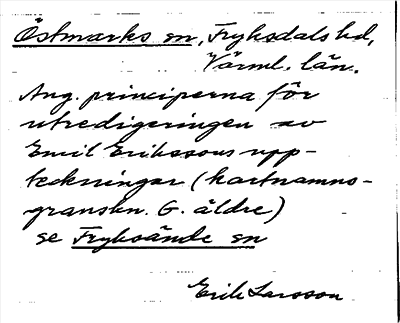 Östmarks sn, Fryksdals hd,
Värml. län.
Ang. principerna för
utredigeringen av
Emil Erikssons upp-
teckningar (kartnamns-
granskn. G. äldre)
se Fryksände sn
Erik Larsson